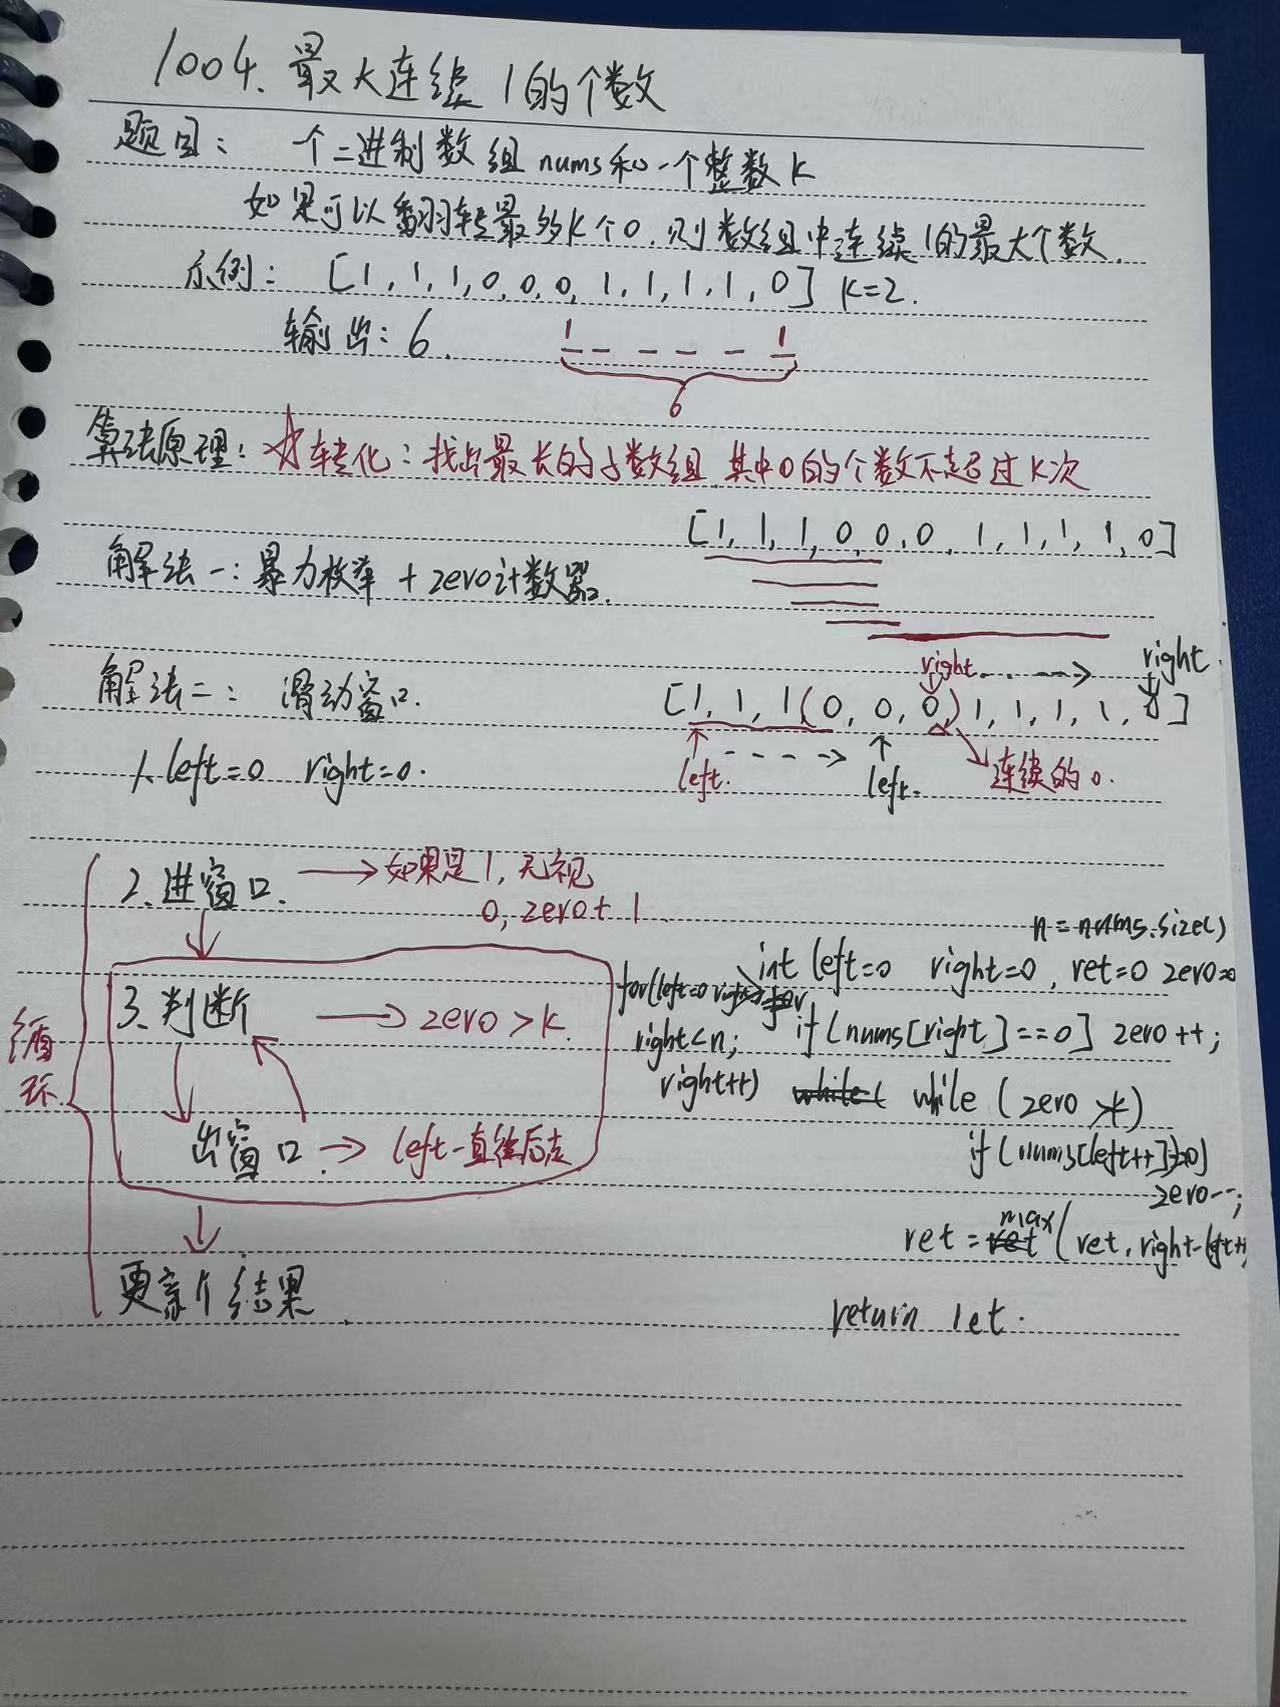 1004. 最大连续1的个数
题目: 一个二进制数组nums和一个整数K
如果可以翻转最多K个0,则数组中连续1的最大个数.
示例: [1,1,1,0,0,0,1,1,1,1,0] K=2.
输出: 6.
1 _ _ _ _ 1
6
算法原理: ☆转化: 找出最长的子数组,其中0的个数不超过K次
[1,1,1,0,0,0,1,1,1,1,0]
解法一: 暴力枚举 + zero计数器.
right. right.
解法二: 滑动窗口.
[1,1,1(0,0,0,)1,1,1,1,0]
left. left. 连续的0.
1. left=0 right=0.
2. 进窗口. → 如果是1,无视
0, zero+1
循环
3. 判断 → zero>k.
出窗口. → left一直往后走
更新个结果.
n = nums.size()
int left=0 right=0, ret=0 zero=0
for(left=0 right=0
right<n;
right++)
if (nums[right]==0] zero++;
while (zero>k)
if (nums[left++]==0)
zero--;
ret = max(ret, right-left+
return ret.